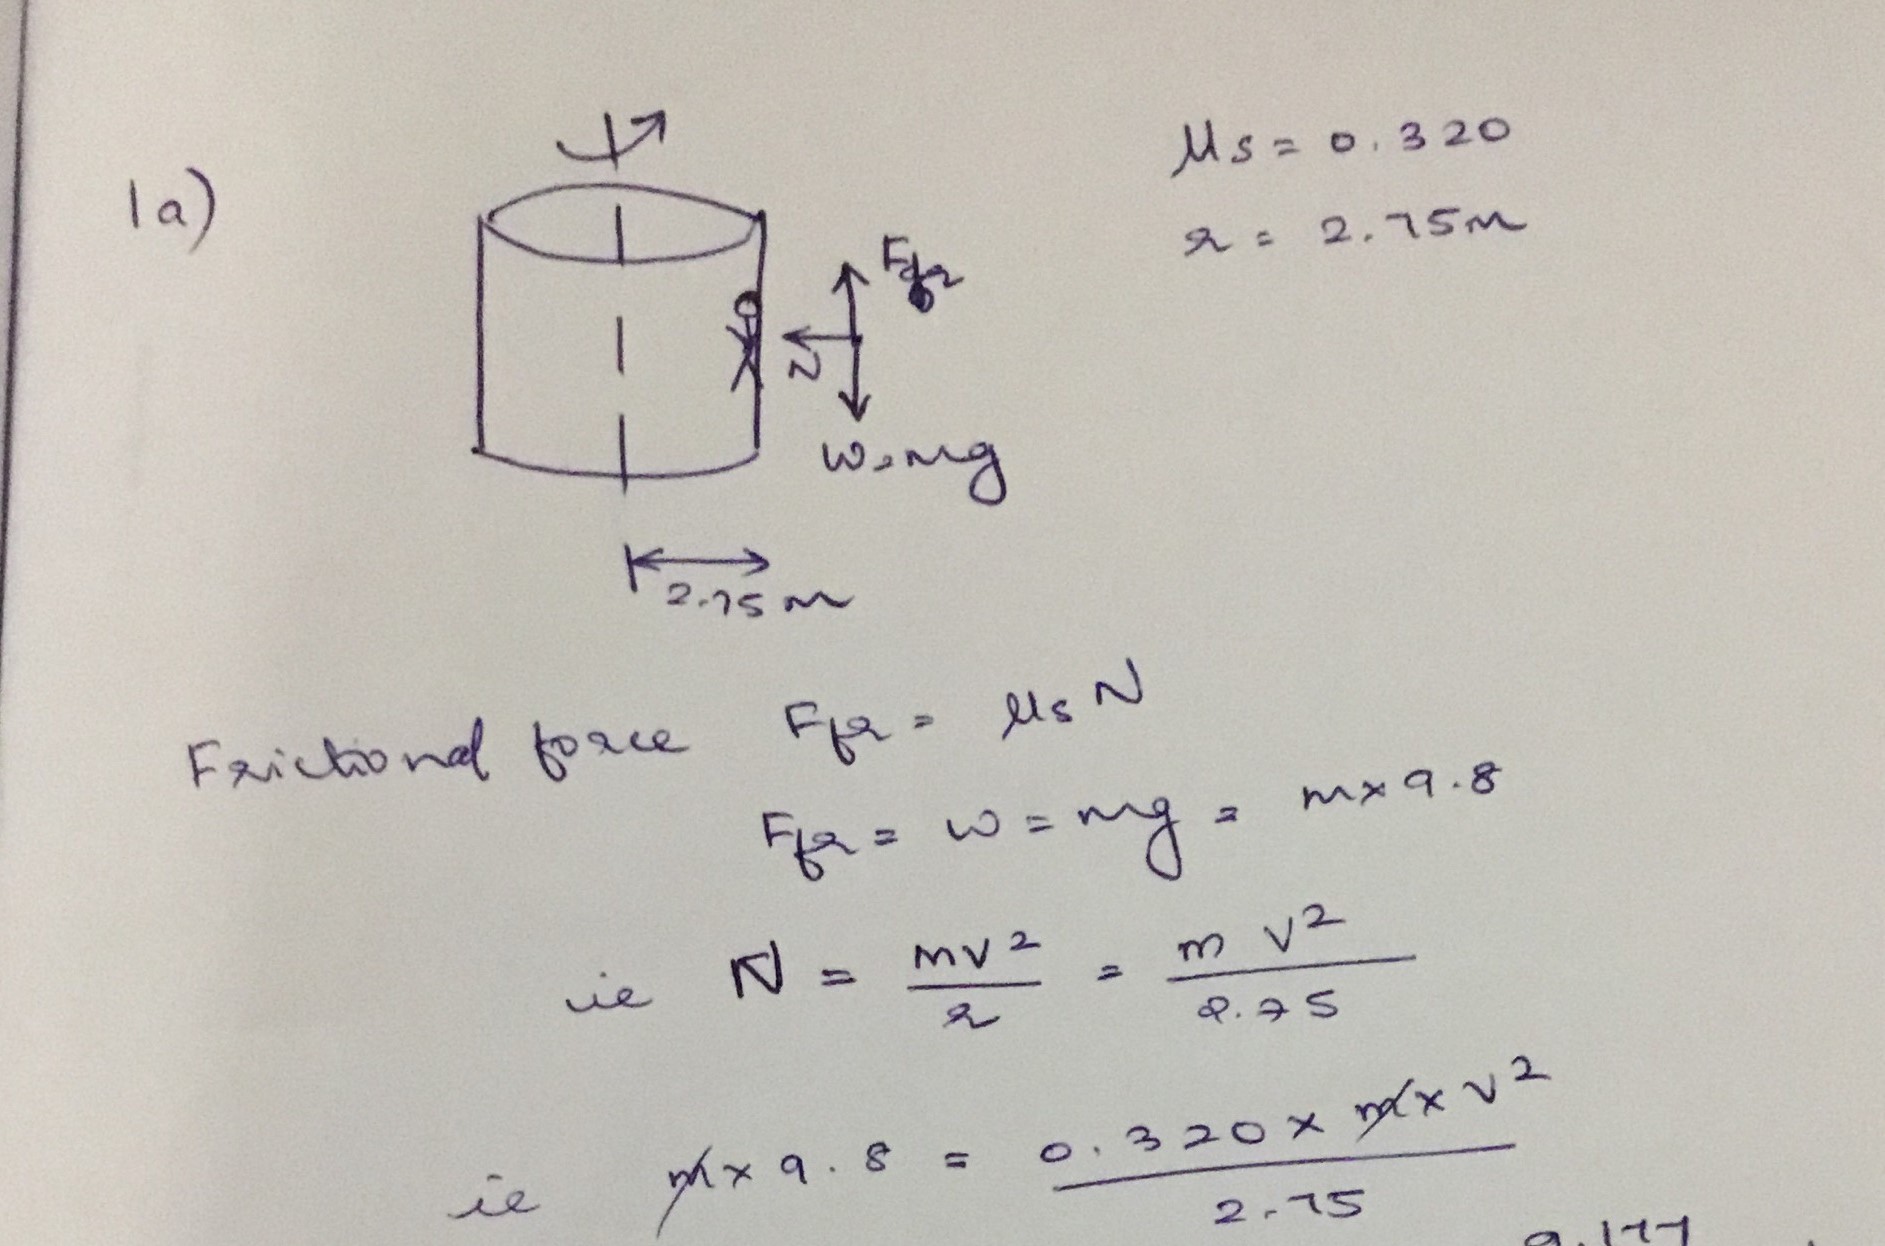 1a)
μs = 0.320
r = 2.75m
Ffr
N
W=mg
2.75m
Frictional force Ffr = μs N
Ffr = W = mg = m×9.8
ie N = mv²/r = m v²/2.75
ie m×9.8 = 0.320×m×v²/2.75